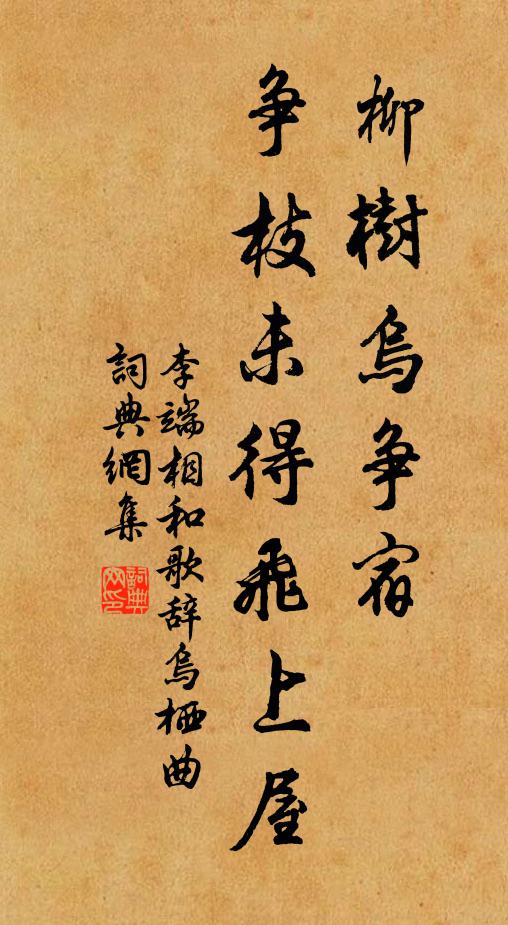 柳樹烏争宿
争枝未得飛上屋
李端相和歌辞烏栖曲
詞典網集
詞典网印